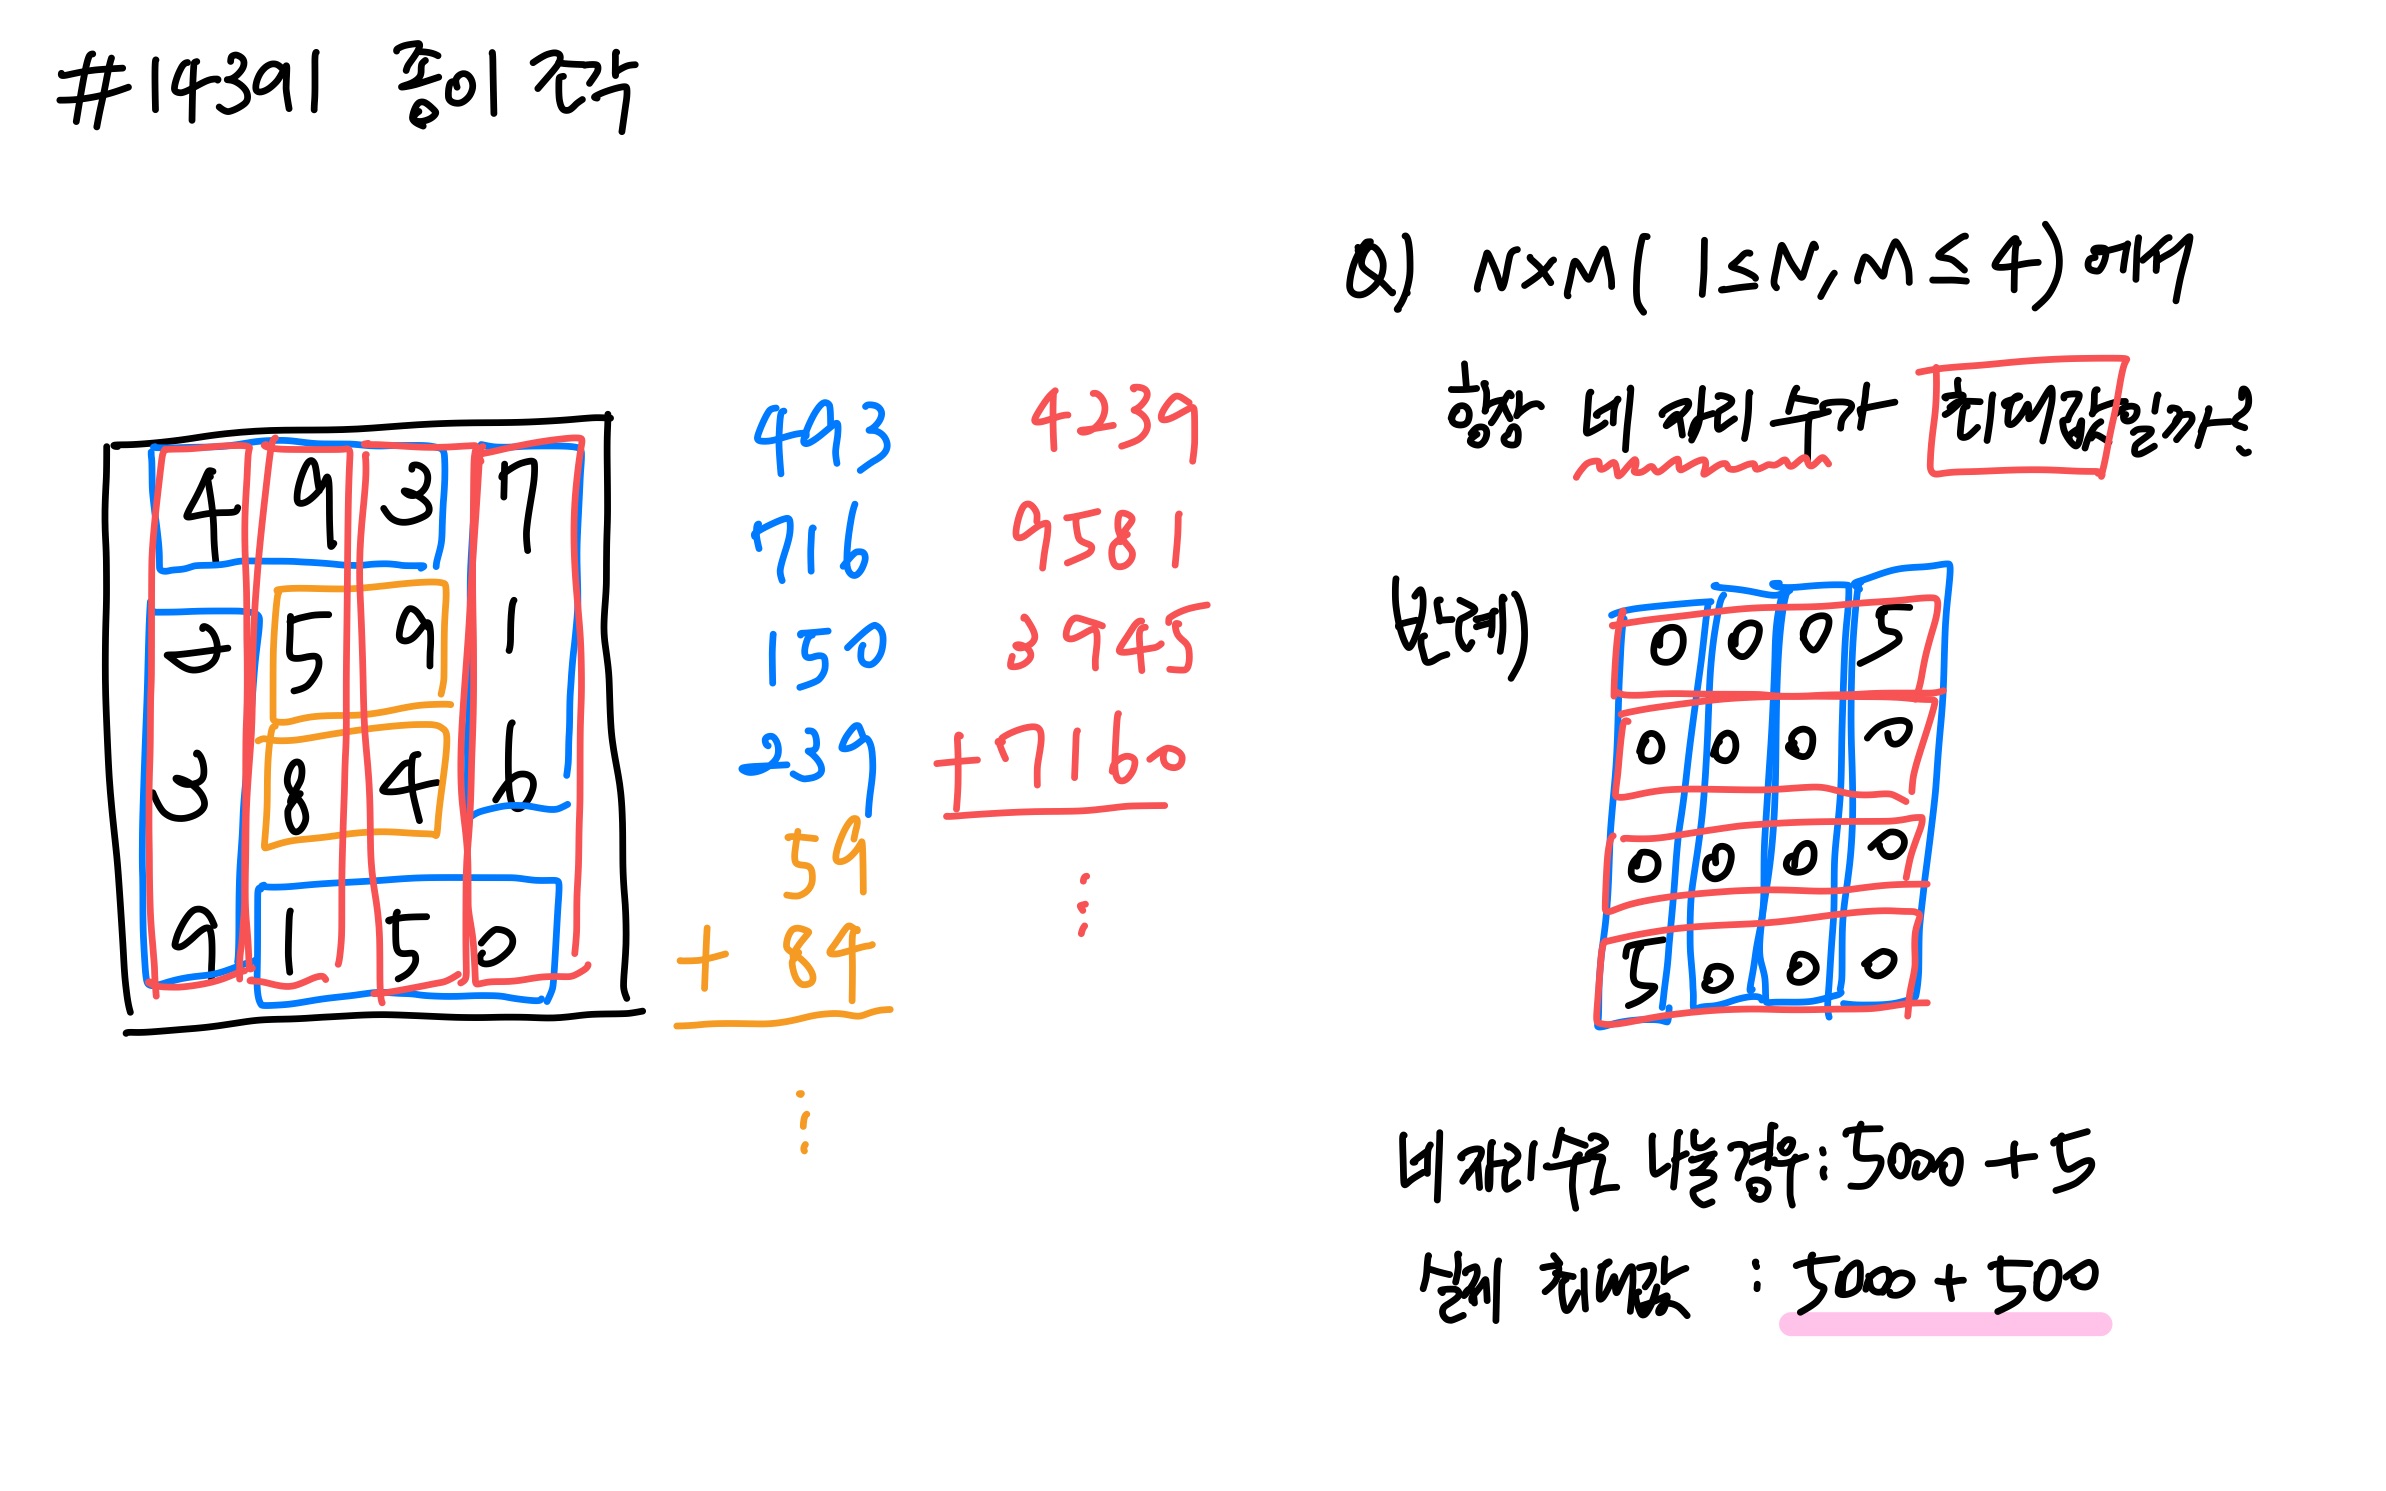 #14391 종이 조각
4 9 3 7
2 5 9 1
3 8 4 6
9 1 5 0
493
716
150
239
59
+ 84
⋮
4239
9581
3945
+ 7160
⋮
Q) N×M( 1≤N, M≤4) 에서
항상 네 자리 수가 최대값을
반례)
0 0 0 5
0 0 0 0
0 0 0 0
5 0 0 0
네 자리 수로 나눌 경우 : 5000 + 5
실제 최대값 : 5000 + 500